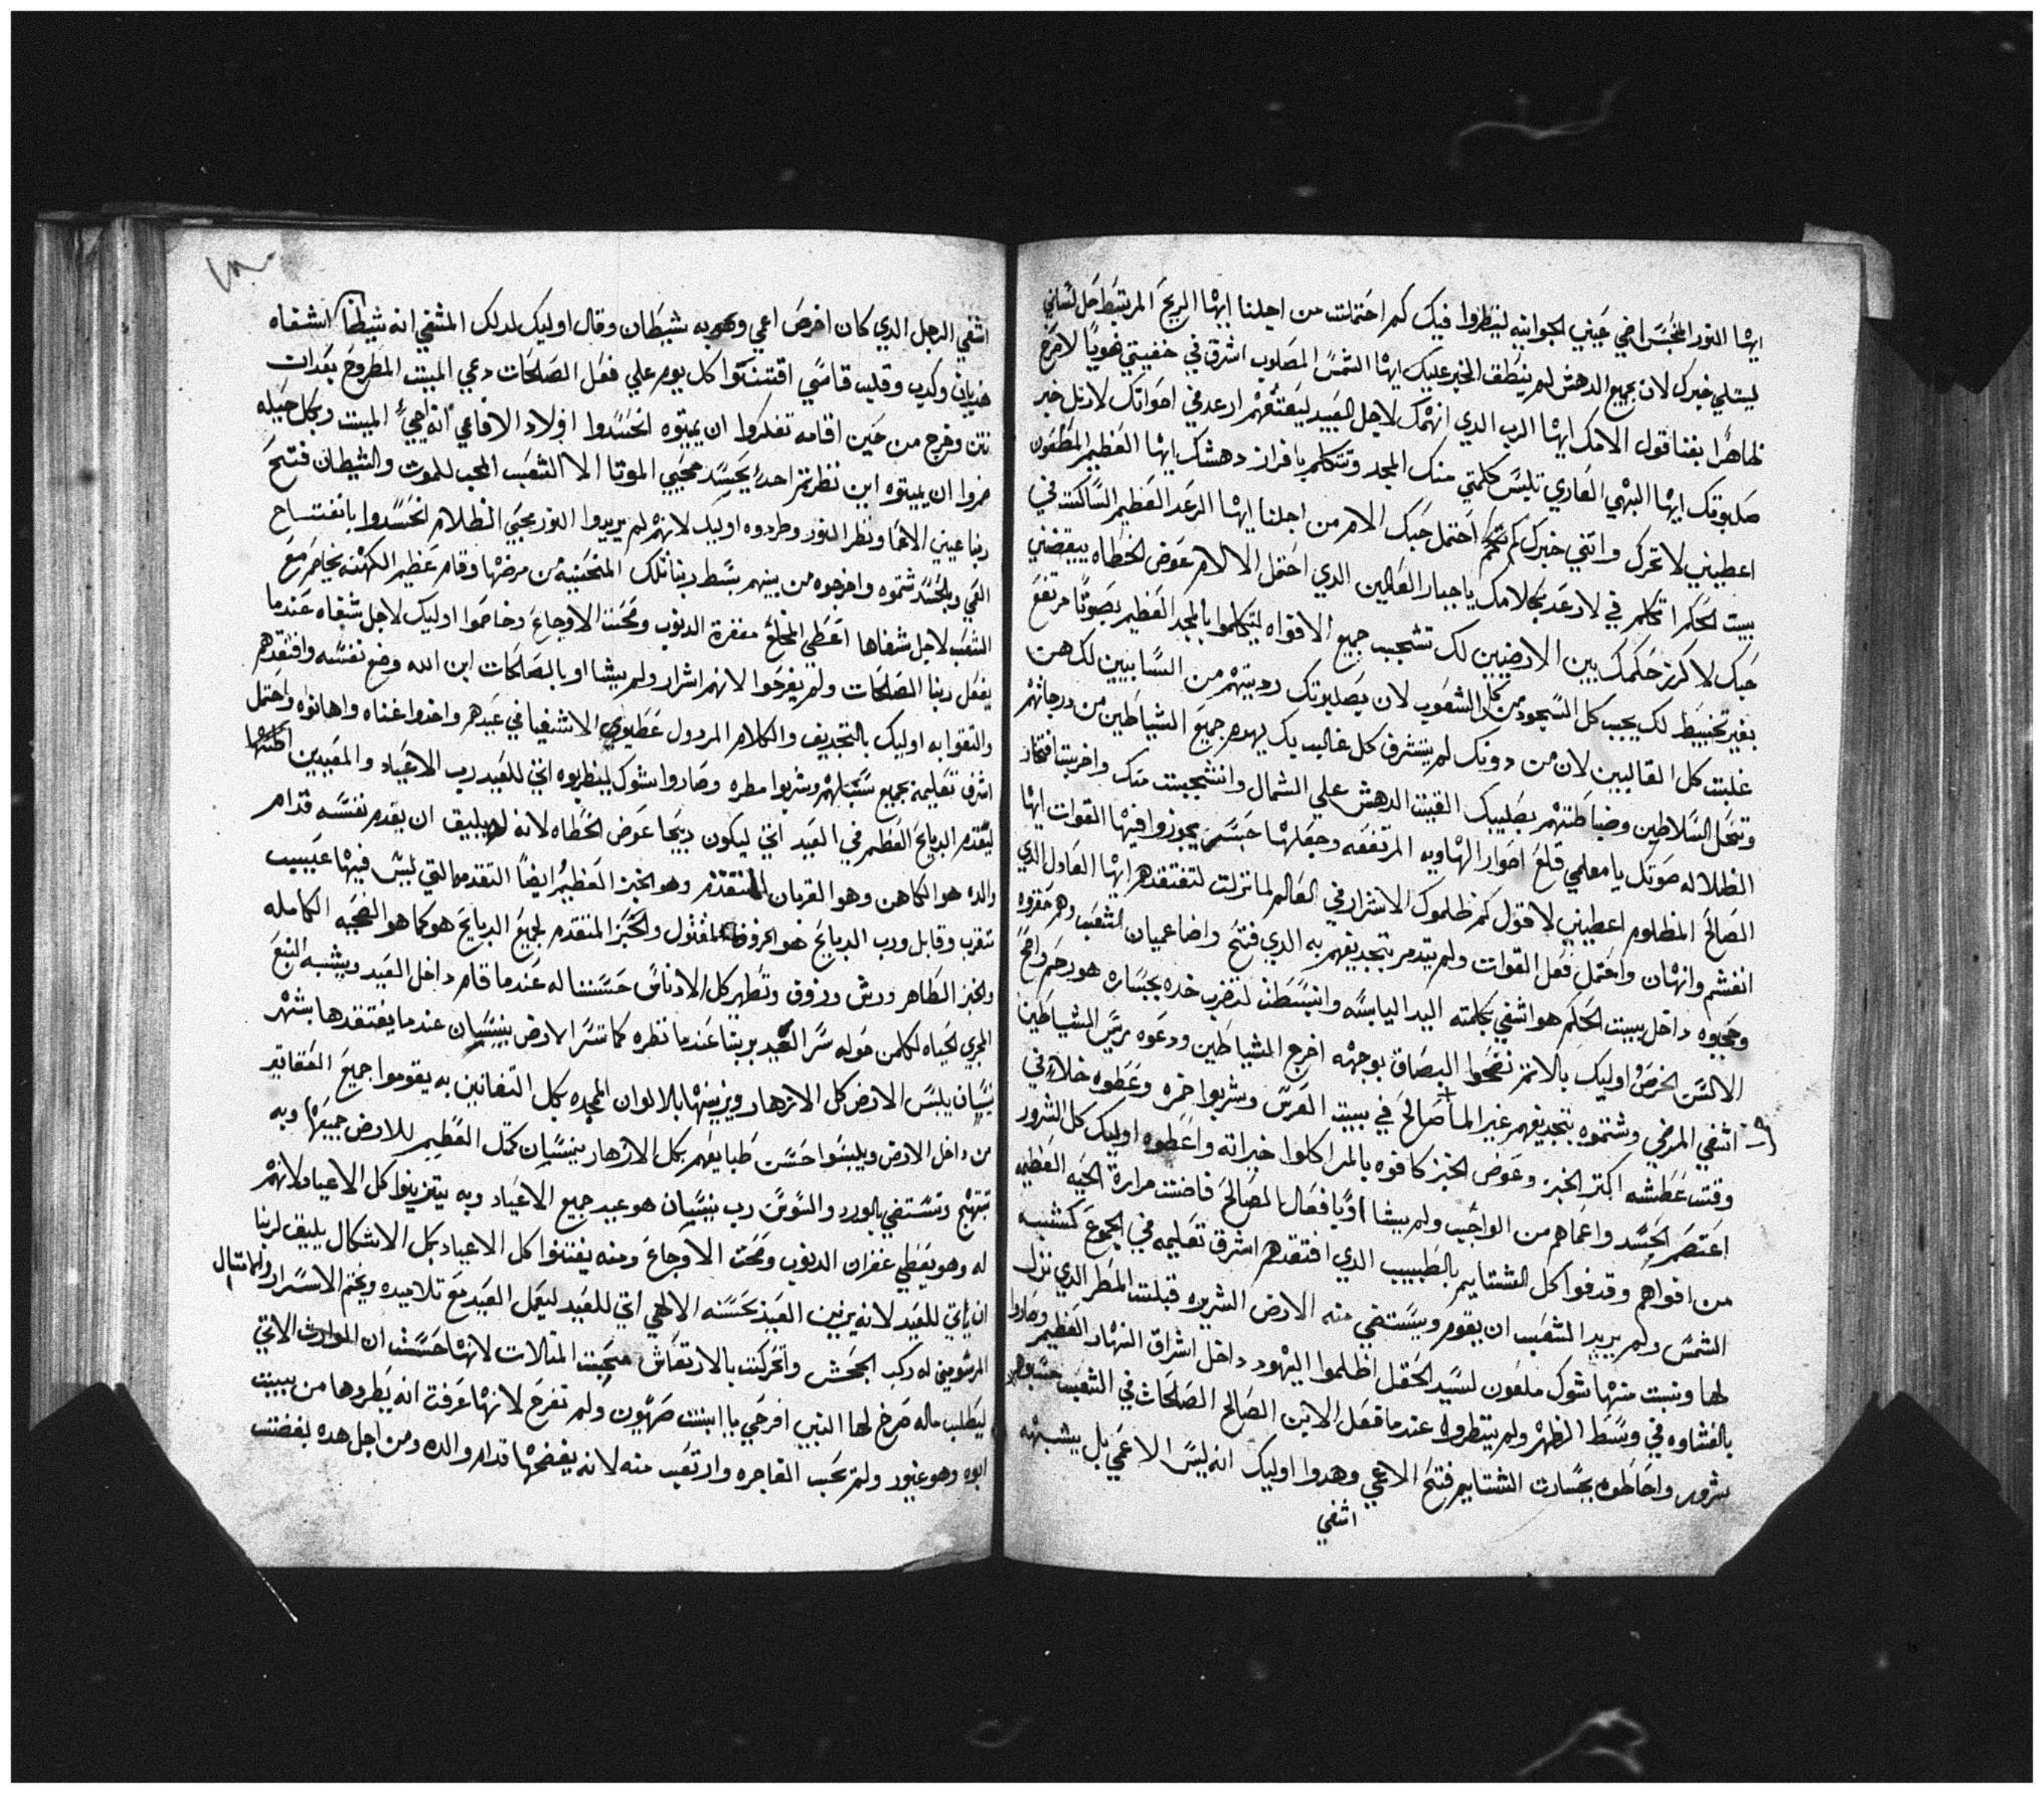 ايها النور المحبس اضي عيني الجوانيه لينظروا فيك كم احتملت من اجلنا ايها الريح المرتبط حل لساني
ليتلي خبرك لان بجميع الدهش لم ينطف الخبر عليك ايها الشمس المصلوب اشرق في خفيتي ضويًا لاصرخ
ظاهرًا بفنا قول الامك ايها الرب الذي انهتك لاجل العبيد ليعتقهم ارعد في اصواتك لارتل خبر
صلبوتك ايها البهي العاري تلبس كلمتي منك المجد وتتكلم بافراز دهشك ايها العظيم المطعون
اعطيني لاتحرك واتني خبرك كم احتمل حبك الامر من اجلنا ايها الرعد العظيم الساكت في
بيت الحكم اتكلم في لارعد بكلامك ياجبار العالين الدي احتمل الالام عوض الخطاه يبغضني
حبك لاكرز حكمك بين الارضيين لك تشجب جميع الافواه ليتكلموا بالمجد العظيم بصوتًا مرتفع
بغير تخبيط لك يجب كل السجود من كل الشعوب لان بصلبوتك رديتهم من السابيين لك هن
غلبت كل الغالبين لان من دونك لم يتشرف كل غالب بك يهدم جميع الشياطين من درجاتهم
وتنحل السلاطين وضباطتهم بصليبك القيت الدهش علي الشمال وانشجبت منك واخربت افتخار
الظلاله صوتك يامعلمي قلع اصوار الهاويه المرتفعه وجعلها جسر يجوزوا فيها القوات ايها
الصالح المظلوم اعطيني لاقول كم ظلموك الاشرار في العالم لما نزلت لتفتقدهم ايها العادل الدي
انغشم وانهان واحتمل فعل القوات ولم يتدمر بتجديفهم به الدي فتح واضا عميان الشعب وهم حقروه
وحجبوه داخل بيت الحكم هو اشفي بكلمته اليد اليابسه وانبسطت لتضرب خده بجساره هو رحم وافتح
الالسن الخرص اوليك بالاتم نضحوا البصاق بوجهه اخرج الشياطين ودعوه ريس الشياطين
اشفي المرضي وشتموه بتجديفهم غير الما صالح في بيت العرس وشربوا خمره وعطوه خلاء في
وقت عطشه اكثر الخبز وعوض الخبز كافوه بالمر اكلوا خيراته واعطوه اوليك كل الشرور
اعتصم الحسد واعماهم من الواجب ولم يشا اوًيا فعال المصالح فاضت مرارة الحيه العظيمه
من افواهم وقدفوا كل الشتايم بالطبيب الدي افتقدهم اشرق تعليمه في الجموع كشبه
الشمس ولم يريد الشعب ان يقوم ويستضي منه الارض الشريره قبلت المطر الدي نزل
لها ونبت منها شوك ملعون لسيد الحقل اظلموا اليهود داخل اشراق النهار العظيم وصاروا
بالغشاوه في وسط الظهر ولم ينظروا عندما فعل الابن الصالح الصلحات في الشعب
بشرور واحاطوه بجسارت الشتايم فتح الاعمي وهدوا اوليك انه ليس الاعمي بل يشبهه
اشفي
اشفي الرجل الدي كان اخرص اعمي وبه شيطان وقال اوليك لدلك المشفي انه شيطانًا اشفاه
هديان وكدب وقلب قاسي اقتنتوا كل يوم علي فعل الصلحات دعي الميت المطروح بعدات
نتن وخرج من حين اقامه تفكروا ان يميتوه انحسدوا اولاد الافاعي انه احيي الميت وبكل حيله
ضروا ان يميتوه اين نظرتم احدًا يحسد محيي الموتا الا الشعب المحب للموت والشيطان فتح
ربنا عيني الاعما ونظر النور وطردوه اوليك لانهم لم يريدوا النور محبي الظلام انحسدوا بانفتاح
العمي وبالحسد شتموه واخرجوه من بينهم بسط ربنا تلك المنحنيه من مرضها وقام عظيم الكهنه يخاصم مع
الشعب لاجل شفاها اعطي المخلع مغفرة الدنوب ومحت الاوجاع وخاصموا اوليك لاجل شفاه عندما
يفعل ربنا الصلحات ولم يفرحوا لانهم اشرار ولم يشا او بالصلحات ابن الله وضع نفسه وافتقدهم
والتقوا به اوليك بالتجديف والكلام المردول عطيوا الاشفيا في عيدهم واخدوا غناه واهانوه واحتمل
اشرق تعليمه بجميع سبلهم وشربوا مطره وصاروا شوك لينظربوه اتي للعيد رب الاعياد والمعيدين
ليتقدم الدبايح العظم في العيد اتي ليكون دبيحا عوض الخطاه لانه يليق ان يقدم نفسه قدام
والده هو الكاهن وهو القربان المتقدم وهو الخبز العظيم ايضًا التقدمه التي ليس فيها عيب
متقرب وقابل ورب الدبايح هو الخروف المقتول والحبر المتقدم لجميع الدبايح هو كما هو الضحيه الكامله
والخبز الطاهر ورش وزوق وتطهير كل الادناس حسنا له عندما قام داخل العيد ويشبه النبع
المجري الحياه لكل من حوله سر العيد بربنا عندما نظره كما تسر الارض بنيسان عندما يفتقدها بشهر
نيسان يلبس الارض كل الازهار ويزينها بالالوان المجده بكل التفانين به يقوموا جميع العقاقير
من داخل الارض ويلبسوا حسن طبايعهم بكل الازهار بنيسان كمتل العظيم للارض جميعها وبه
تبتهج وتستضي بالورد والسوسن رب نيسان هو عيد جميع الاعياد وبه يتزينوا كل الاعياد لانهم
له وهو يعطي غفران الدنوب ومحت الاوجاع ومنه يغتنوا كل الاعياد بكل الاشكال يليق لربنا
ان ياتي للعيد لانه يزين العيد بحسنه الالهي اتي للعيد ليعمل العيد مع تلاميده ويختم الاسرار والامتال
المرسومين له ركب الجحش واتحركت بالارتعاش محبت المتالات لانها حسنت ان الموارث الاتي
ليطلب ماله صرخ لها النبي افرحي يا ابنت صهيون ولم تفرح لانها عرفت انه يطردها من بيت
ابوه وهو غيور ولم تحب الفاجره وارتعب منه لانه يفضحها قدام والده ومن اجل هده بغضت